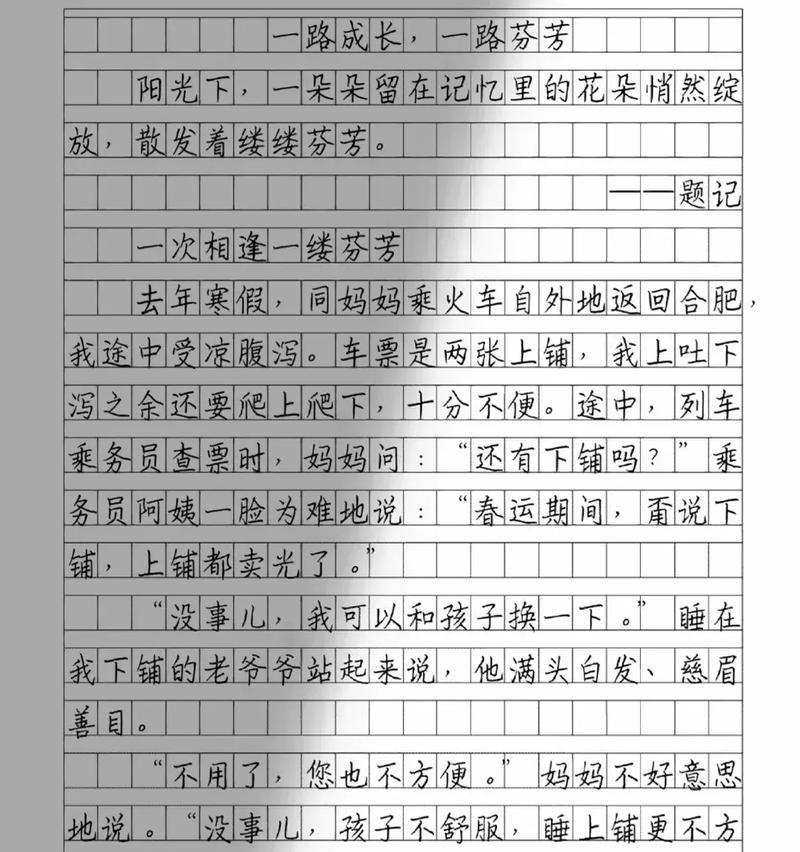 一路成长，一路芬芳
阳光下，一朵朵留在记忆里的花朵悄然绽
放，散发着缕缕芬芳。
——题记
一次相逢一缕芬芳
去年寒假，同妈妈乘火车自外地返回合肥，
我途中受凉腹泻。车票是两张上铺，我上吐下
泻之余还要爬上爬下，十分不便。途中，列车
乘务员查票时，妈妈问：“还有下铺吗？”乘
务员阿姨一脸为难地说：“春运期间，甭说下
铺，上铺都卖光了。”
“没事儿，我可以和孩子换一下。”睡在
我下铺的老爷爷站起来说，他满头白发、慈眉
善目。
“不用了，您也不方便。”妈妈不好意思
地说。“没事儿，孩子不舒服，睡上铺更不方